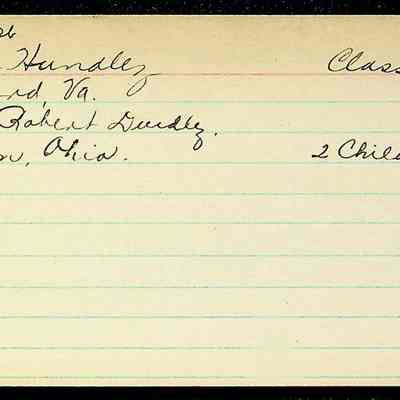 Hundley Class
rd, Va.
Robert Gurdley.
n, Ohio. 2 Chil